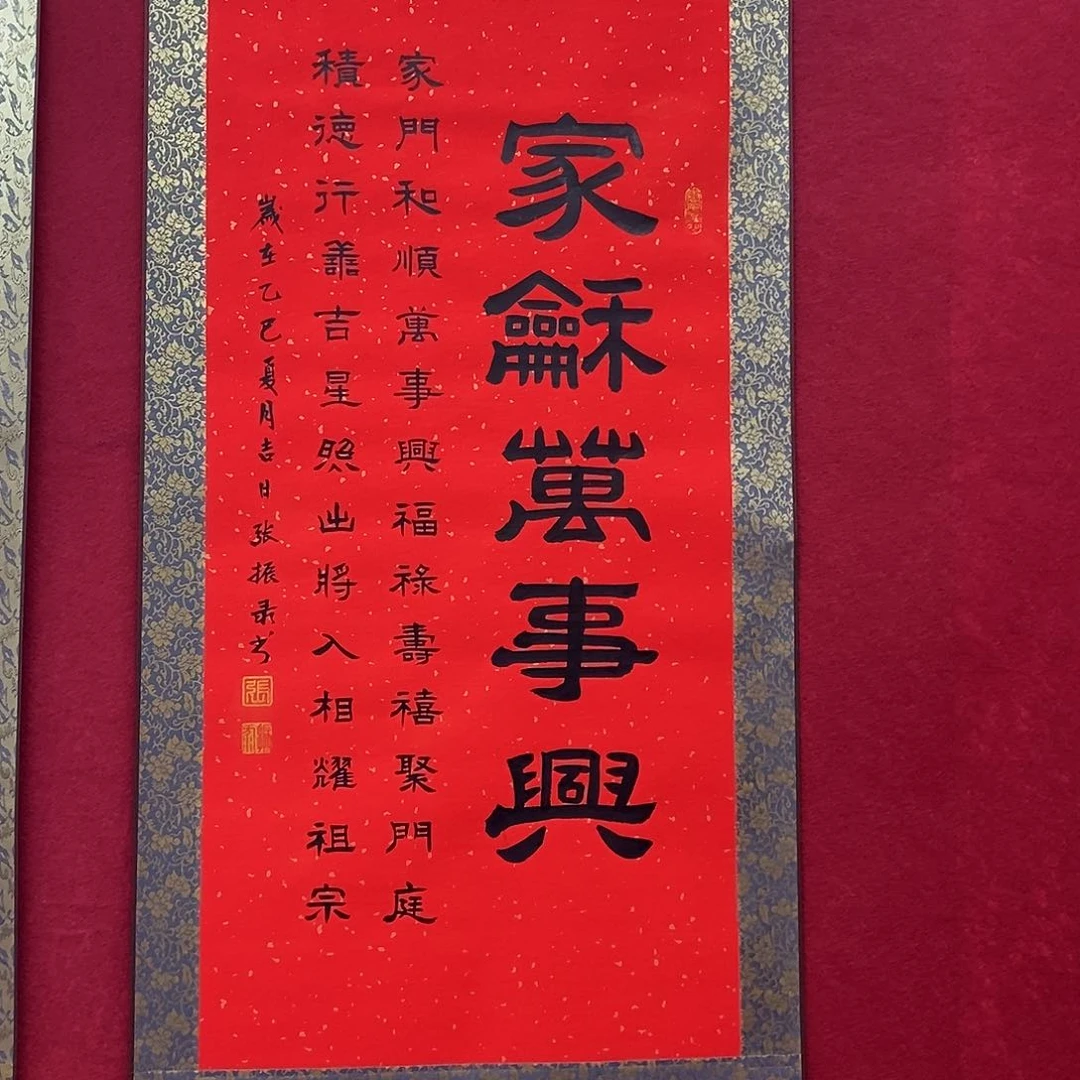 家龢萬事興
家門和順萬事興福祿壽禧聚門庭
積德行善吉星照出將入相耀祖宗
歲在乙巳夏月吉日張振录书
張